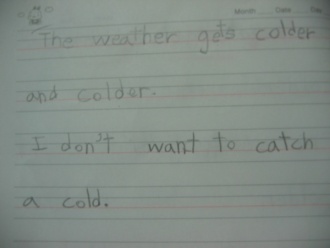 Month Date
The weather gets colder
and colder.
I don't want to catch
a cold.